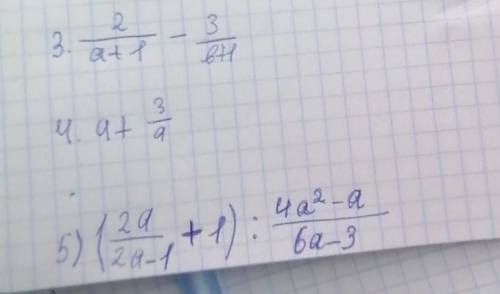 3. 2/(a+1) - 3/(b+1)
4. a + 3/a
5) (2a/(2a-1) + 1) : (4a²-a)/(6a-3)